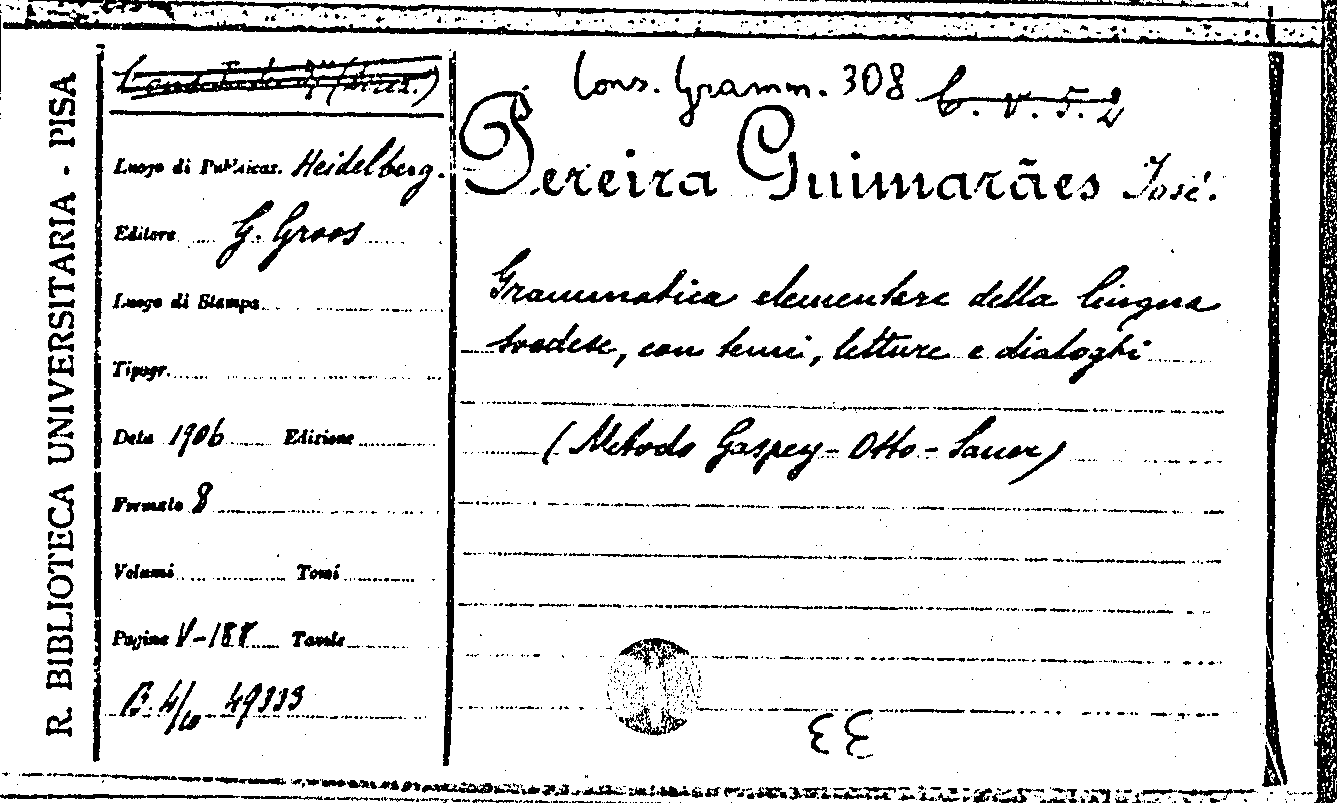 R. BIBLIOTECA UNIVERSITARIA - PISA
Cons. Gramm. 308 C. V. 5. 2
Pereira Guimarães José.
Luogo di Pubblicaz. Heidelberg.
Editore G. Groos
Luogo di Stampa
Tipogr.
Data 1906 Edizione
Formato 8
Volumi Tomi
Pagine V-188 Tavole
B. 4/10 49333
Grammatica elementare della lingua
svedese, con temi, letture e dialoghi
(Metodo Gaspey-Otto-Sauer)